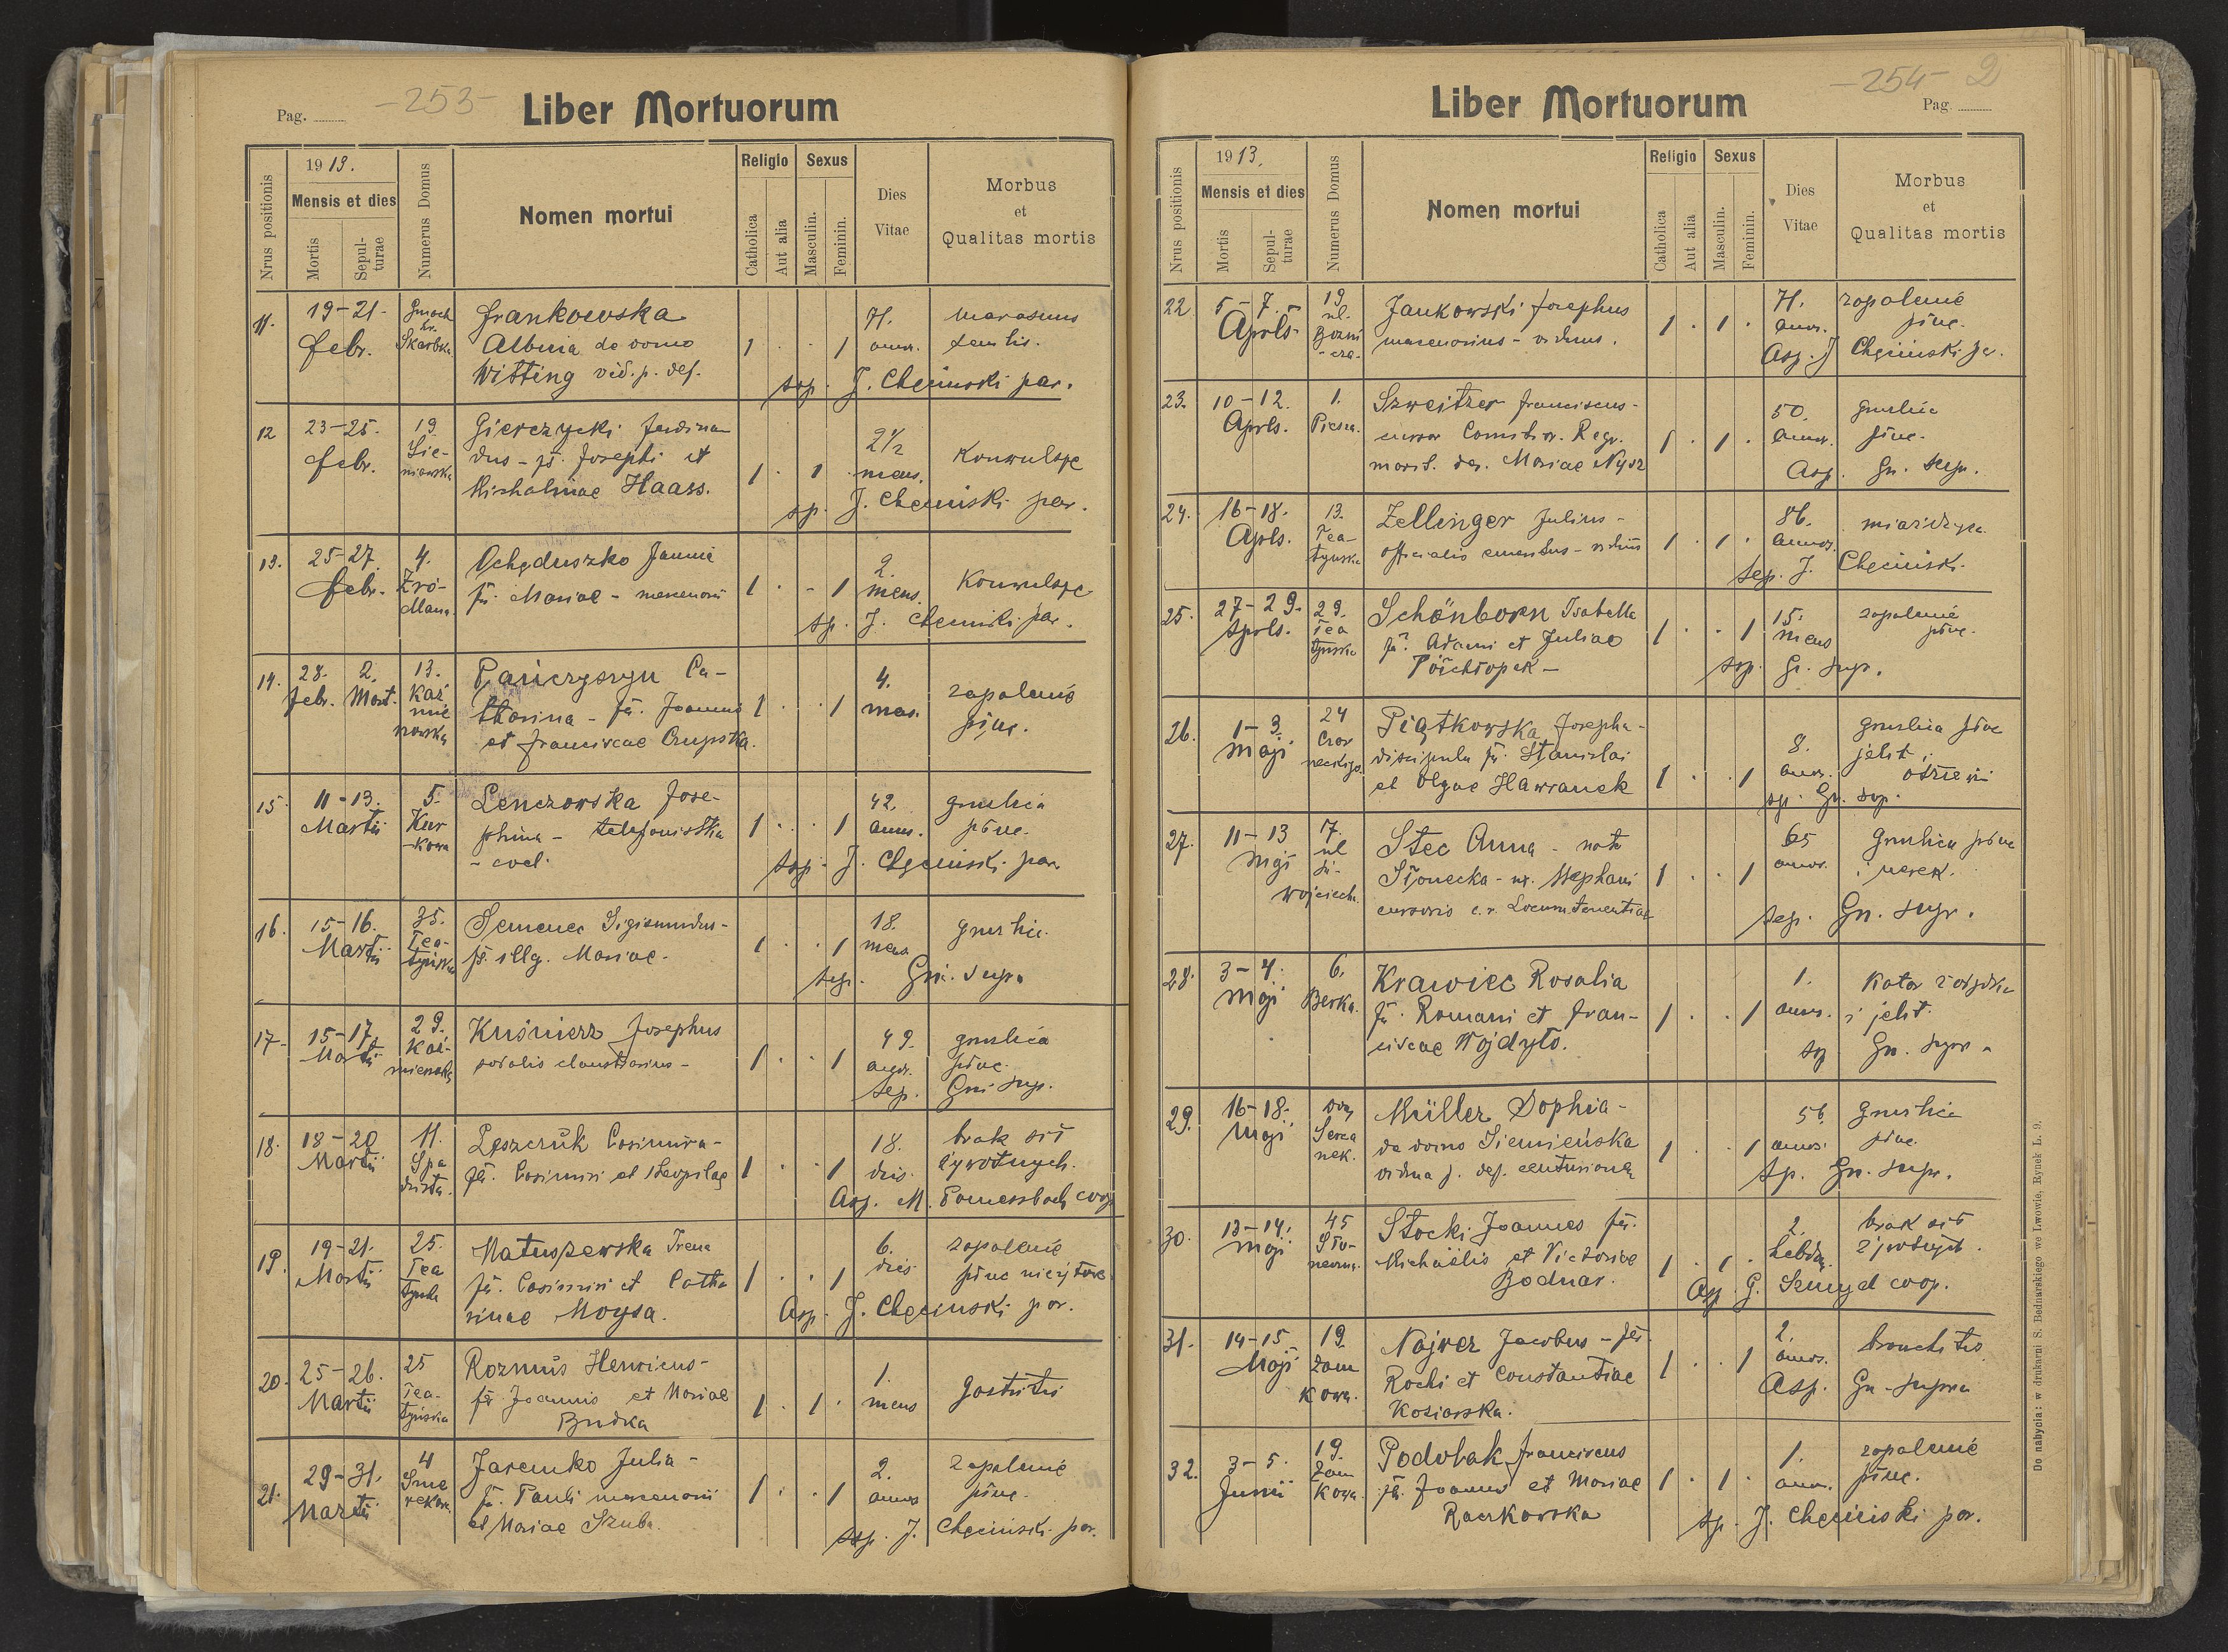 Pag. -253- Liber Mortuorum
Nrus positionis
1913.
Mensis et dies
Mortis
Sepulturae
Numerus Domus
Nomen mortui
Religio
Catholica
Aut alia
Sexus
Masculin.
Feminin.
Dies
Vitae
Morbus
et
Qualitas mortis
11. 19-21. febr. Gmach hr. Skarbka
Frankowska
Albina de domo
Witting vid. p. def.
1 . . 1
71. annor. marasmus senilis.
sep. J. Chęciński par.
12 23-25. febr. 19 Sieniawska
Gierczycki Ferdinandus - fs. Josephi et
Michalinae Haass.
1 . 1 .
2 1/2 mens. Konwulsye
sp. J. Chęciński par.
13. 25-27. febr. 4. Zródlana
Ochęduszko Janina
fa. Mariae - mercenarii
1 . - 1
2. mens. Konwulsye
sp. J. Chęciński par.
14. 28. febr. 2. Mart. 13. Kaźmierzowska
Pańczyszyn Catharina - fa. Joannis
et Franciscae Czupska.
1 . . 1
4. mens. zapalenie płuc.
15 11-13. Martii 5. Kurkowa
Lenczowska Josephina - telefonistka
- coel.
1 . . 1
42. annor. gruźlica płuc.
sep. J. Chęciński par.
16. 15-16. Martii 35. Teatyńska
Semenec Sigismundus -
fs. illg. Mariae.
1 . . 1
18. mens gruźlica.
sep. Gn. supra
17. 15-17. Martii 29. Kaźmierzowska
Kuśnierz Josephus
sodalis claustrarius -
1 . . 1
49. annor. gruźlica płuc.
sep. Gn. sup.
18. 18-20 Martii 11. Spadzista.
Leszczuk Casimira -
fa. Casimiri et Leopilae
1 . . 1
18. dies brak sił żywotnych.
Asp. M. coop
19. 19-21. Martii 25. Teatyńska
Matuszewska Irena
fa. Casimiri et Catharinae Moysa.
1 . . 1
6. dies zapalenie płuc nieżytowe
Asp. J. Chęciński par.
20. 25-26. Martii 25 Teatyńska
Rozmus Henricus -
fs. Joannis et Mariae
Budka
1 . 1 .
1. mens gastritis
21. 29-31. Martii 4 Smerekowa
Jaremko Julia -
fa. Pauli mercenarii
et Mariae Szuba.
1 . . 1
2. annor zapalenie płuc.
sep. J. Chęciński par.
Liber Mortuorum -254- 2 Pag.
Nrus positionis
1913.
Mensis et dies
Mortis
Sepulturae
Numerus Domus
Nomen mortui
Religio
Catholica
Aut alia
Sexus
Masculin.
Feminin.
Dies
Vitae
Morbus
et
Qualitas mortis
22 5-7. Aprls. 19 ul.
Jankowski Josephus
mercenarius - viduus.
1 . 1 .
71. annor. zapalenie płuc.
Asp. J Chęciński par.
23. 10-12. Aprls. 1. Piesza.
Szweitzer Franciscus -
cursor
marit. der. Mariae Nysz
1 . 1 .
50. annor. gruźlica płuc.
Asp. Gn. sup.
24. 16-18. Aprls. 13. Teatyńska
Zellinger Julius -
officialis emeritus - viduus
1 . 1 .
86. annor. miażdżyca
sep. J. Chęciński.
25. 27-29. Aprls. 29. Teatyńska
Schönborn Isabella
fa. Adami et Juliae
Półchłopek -
1 . . 1
15. mens zapalenie płuc.
sep. Gn. sup.
26. 1-3. Maji 24 Czarneckiego
Piątkowska Josepha -
discipula fa. Stanislai
et Olgae Hawranek
1 . . 1
8. annor. gruźlica płuc jelit i
sp. Gn. sup.
27. 11-13 Maji 17. ul Śú-Wojciecha
Stec Anna - nata
Słonecka - ux. Stephani
cursoris c.r. Locumtenentiae
1 . . 1
65 annor. gruźlica płuc i nerek.
sep. Gn. supr.
28. 3-4. Maji 6. Berka.
Krawiec Rosalia
fa. Romani et Franciscae Wojdyło.
1 . . 1
1. annor. Katar żołądka i jelit.
sp Gn. supr.
29. 16-18. Maji
Müller Sophia -
de domo Siemieńska
vidua p. def. centurionem
1 . . 1
56 annor. gruźlica płuc.
sp. Gn. supr.
30. 13-14. Maji 45 Słoneczna.
Stocki Joannes fs.
Michaëlis et Victoriae
Bodnar.
1 . 1 .
2. hebdom. brak sił żywotnych.
Asp. G. Szmyd coop.
31. 14-15. Maji 19. Zamkowa.
Najwer Jacobus - fs.
Rochi et Constantiae
Kosiorska.
1 . . 1
2. annor. bronchitis
Asp. Gn. supra
32. 3-5. Junii 19. Zamkowa.
Podolak Franciscus
fs. Joannis et Mariae
Raczkowska
1 . 1 .
1. annor. zapalenie płuc.
sp. J. Chęciński par.
Do nabycia: w drukarni S. Bednarskiego we Lwowie, Rynek L. 9.